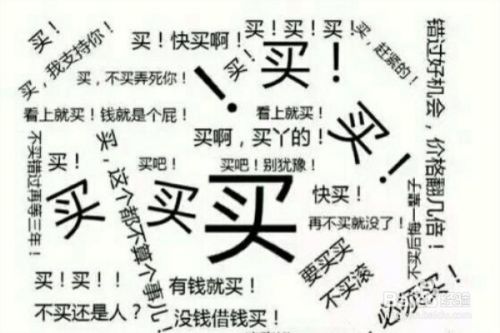 买！
买！快买啊！
买！买！买！
买，我支持你！
买！
买！
买，赶紧的！
错过好机会，价格翻几倍！
买，不买弄死你！
！
看上就买！钱就是个屁！
看上就买！
买！
买啊，买丫的！
不买错过再等三年！
买！
买，这个都不算个事儿！
买吧！
买吧！别犹豫！
买
买
买
快买！
再不买就没了！
不买后悔一辈子
买！买！
有钱就买！
要买买
不买滚
必须买！
不买还是人？
没钱借钱买！